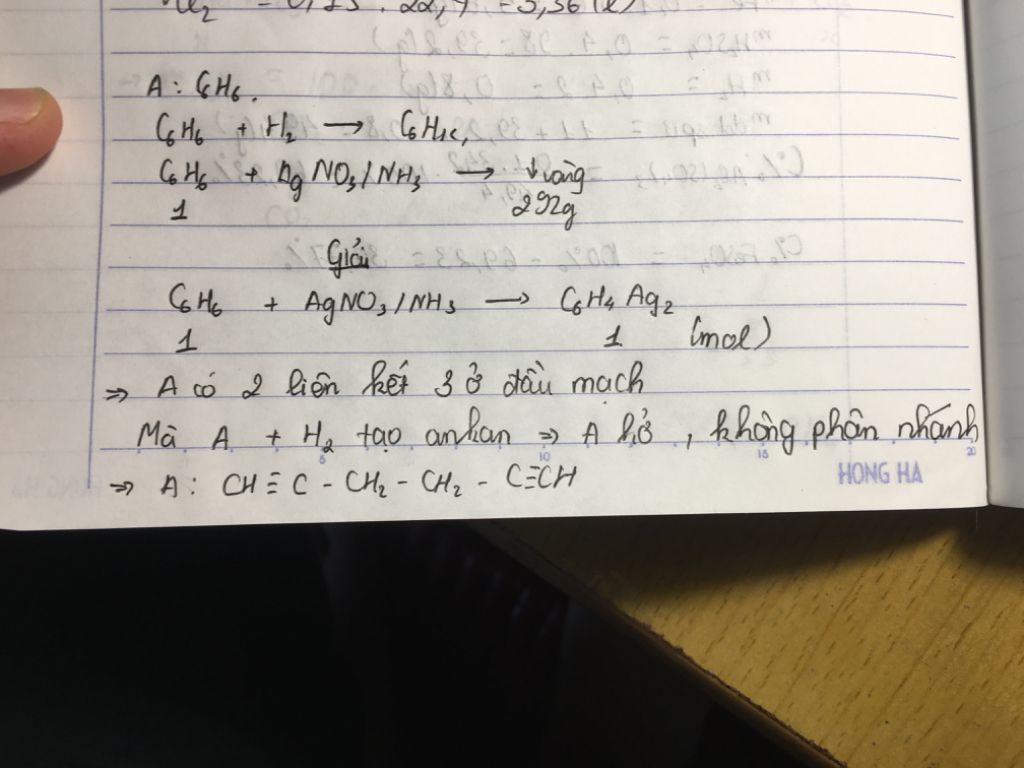 = 0,15 . 22,4 = 3,36 (l)
A : C6H6.
C6H6 + H2 → C6H14
C6H6 + AgNO3/NH3 → ↓ vàng
1 292g
Giải
C6H6 + AgNO3/NH3 → C6H4Ag2
1 1 (mol)
⇒ A có 2 liên kết 3 ở đầu mạch
Mà A + H2 tạo ankan ⇒ A hở, không phân nhánh
5 10 15 20
⇒ A : CH≡C - CH2 - CH2 - C≡CH
HONG HA